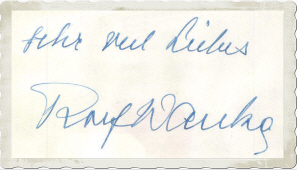 sehr viel Liebes
Rolf Wanka